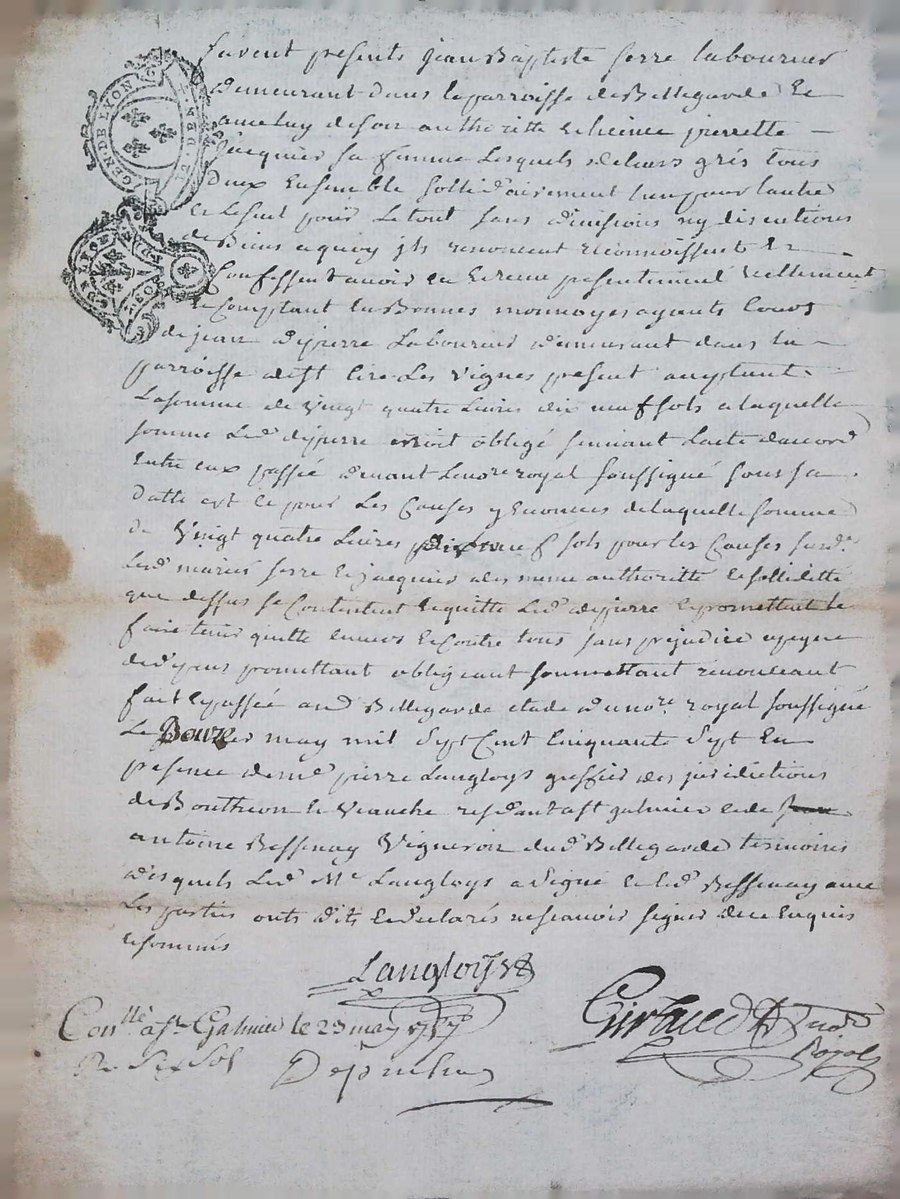 GEN DE LYON
furent presents jean Baptiste serre laboureur
demeurant dans la parroisse de Bellegarde Et
de son authoritté pierrette
jacquier sa femme Lesquels de leurs grés tous
deux Ensemble sollidairement lun pour lautre
Et le seul pour Le tout sans divisions ny discutions
de Biens a quoy ils renoncent reconnoissent Et
Confessent avoir Eu Et receu presentement reellement
Et Comptant En Bonnes monnoyes ayants Cours
de jean depierre Laboureur demeurant dans la
parroisse de st Cire Les Vignes present acceptant
La somme de Vingt quatre Livres dix neuf sols a laquelle
somme Led depierre obligé suivant Lacte daccord
Entre eux passée devant Le nore royal soussigné sous sa
datte Et ce pour Les Causes y Enoncees de laquelle somme
de Vingt quatre Livres dix neuf sols pour les Causes susd
Lesd mariés serre Et jacquier de meme authoritté Et solliditté
que dessus se Contentent Et quitte Led depierre Et promettent Le
faire tenir quitte Envers Et Contre tous sans prejudice
promettant obligeant soumettant renonceant
fait Et passée aud Bellegarde etude du nore royal soussigné
Le Douze may mil Sept Cent Cinquante Sept En
presence de me pierre Langloys greffier des jurisdictions
de Boutheon Et Veauche residant a st galmier Et de
antoine Bessenay Vigneron dud Bellegarde temoins
desquels Led Me Langloys a signé Et led Bessenay avec
Les parties onts dits Et declarés ne scavoir signer de ce Enquis
Et sommés
Langloys
Conllé a St Galmier le 23 may 1757
R. Six Sols
Giraud nore
Royal